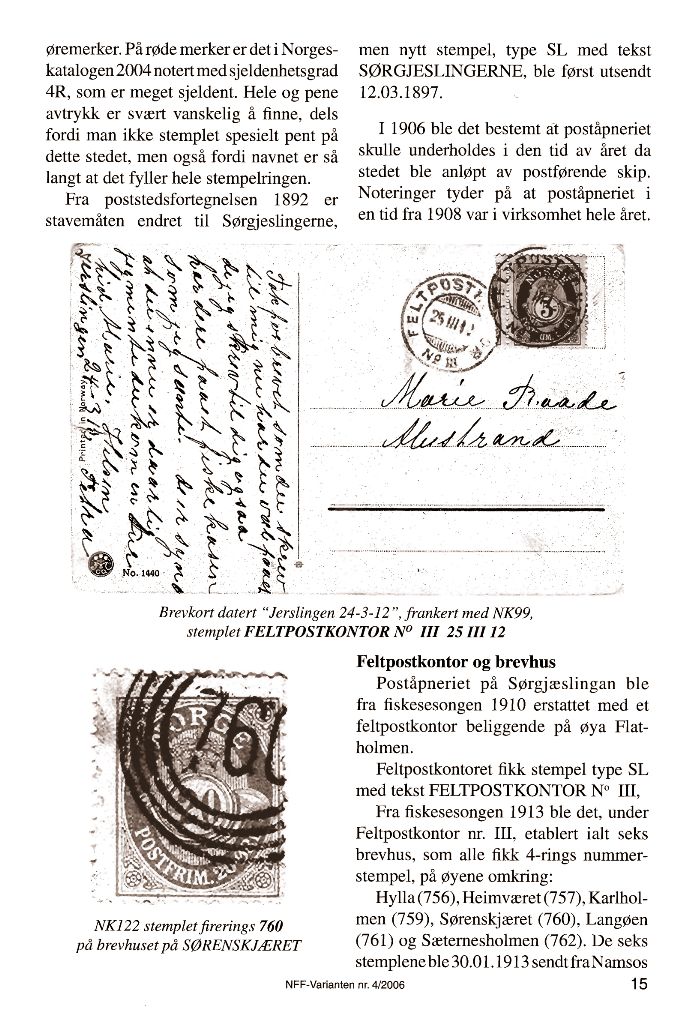 øremerker. På røde merker er det i Norges-
katalogen 2004 notert med sjeldenhetsgrad
4R, som er meget sjeldent. Hele og pene
avtrykk er svært vanskelig å finne, dels
fordi man ikke stemplet spesielt pent på
dette stedet, men også fordi navnet er så
langt at det fyller hele stempelringen.
Fra poststedsfortegnelsen 1892 er
stavemåten endret til Sørgjeslingerne,
men nytt stempel, type SL med tekst
SØRGJESLINGERNE, ble først utsendt
12.03.1897.
I 1906 ble det bestemt at poståpneriet
skulle underholdes i den tid av året da
stedet ble anløpt av postførende skip.
Noteringer tyder på at poståpneriet i
en tid fra 1908 var i virksomhet hele året.
Tak for brevet som du skrev
til mig nu har du vel faaet
det jeg skrev til dig ogsaa
har dere faaet fiske kasen
som jeg sendte. Den synd
at du ennu er daarlig
jeg mente du kom en Tur
hid Marie. Hilsen
Jerslingen 24-3/12 Petra
Printed in Norway
No. 1440
FELTPOSTK
25 III 12
Nº III
NORGE
3
Marie Raade
Alustrand
Brevkort datert "Jerslingen 24-3-12", frankert med NK99,
stemplet FELTPOSTKONTOR Nº III 25 III 12
NORGE
760
POSTFRIM.
NK122 stemplet firerings 760
på brevhuset på SØRENSKJÆRET
Feltpostkontor og brevhus
Poståpneriet på Sørgjæslingan ble
fra fiskesesongen 1910 erstattet med et
feltpostkontor beliggende på øya Flat-
holmen.
Feltpostkontoret fikk stempel type SL
med tekst FELTPOSTKONTOR Nº III,
Fra fiskesesongen 1913 ble det, under
Feltpostkontor nr. III, etablert ialt seks
brevhus, som alle fikk 4-rings nummer-
stempel, på øyene omkring:
Hylla (756), Heimværet (757), Karlhol-
men (759), Sørenskjæret (760), Langøen
(761) og Sæternesholmen (762). De seks
stemplene ble 30.01.1913 sendt fra Namsos
NFF-Varianten nr. 4/2006
15